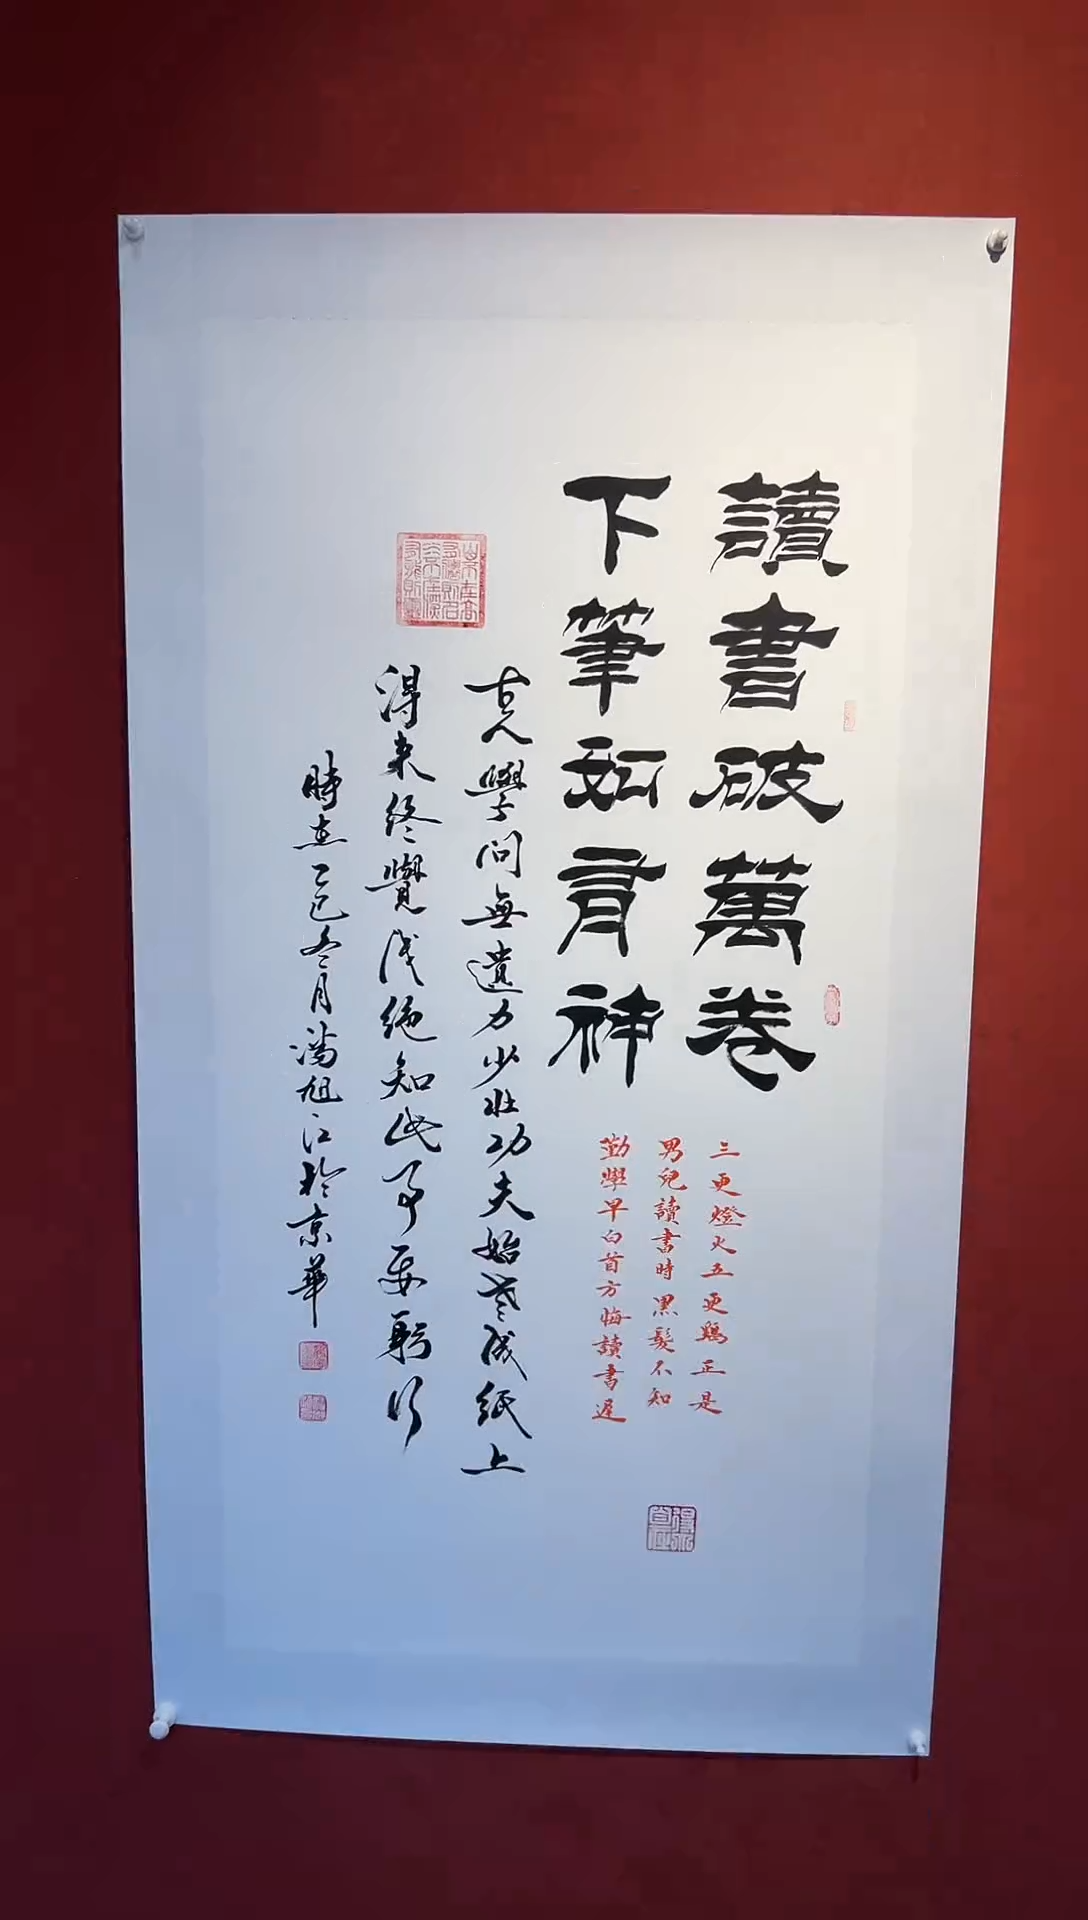 讀書破萬卷
下筆如有神
三更燈火五更鷄正是
男兒讀書時黑髮不知
勤學早白首方悔讀書遲
古人學問無遺力少壯功夫始老成紙上
得来終覺淺絕知此事要躬行
時在乙巳冬月潘旭江於京華